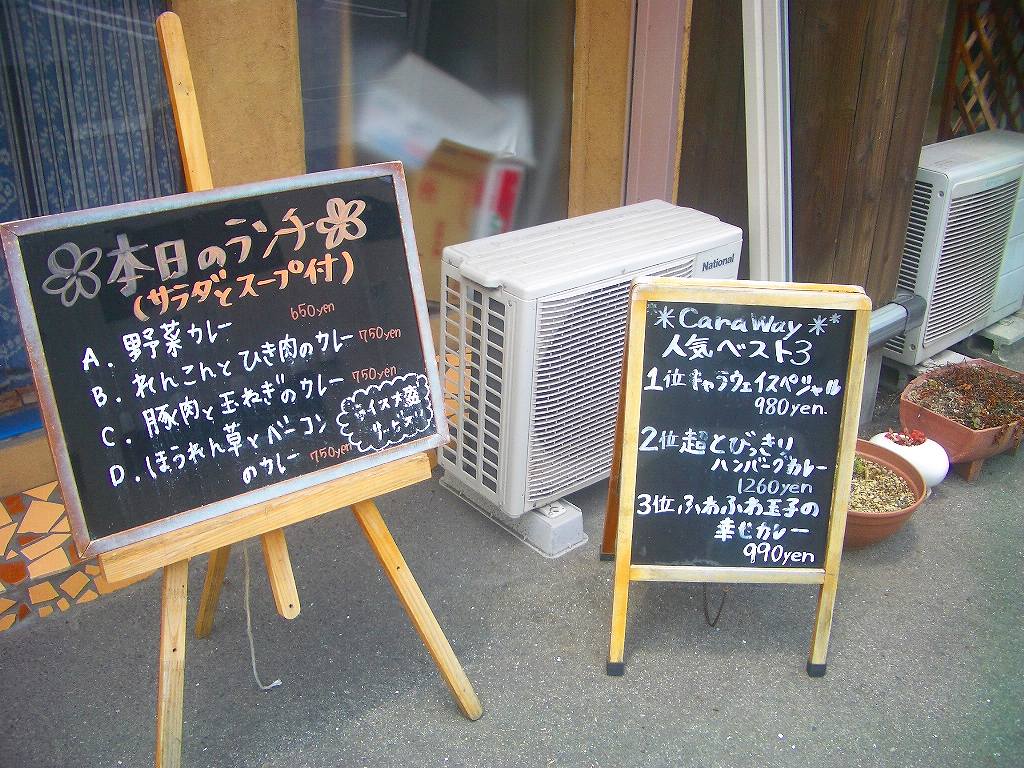 本日のランチ
(サラダとスープ付)
A. 野菜カレー 650yen
B. れんこんとひき肉のカレー 750yen
C. 豚肉と玉ねぎのカレー 750yen
D. ほうれん草とベーコン
のカレー 750yen
ライス大盛
サービス
National
*CaraWay**
人気ベスト3
1位 キャラウェイスペシャル
980yen.
2位 超とびっきり
ハンバーグカレー
1260yen
3位 ふわふわ玉子の
カレー
990yen